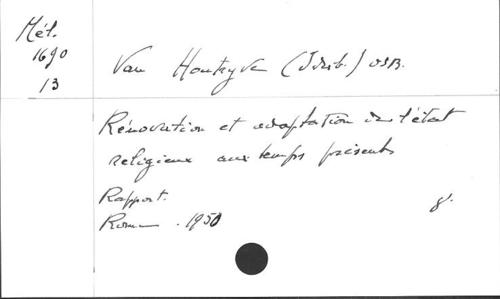 Mél.
1690
13
Van Houtryve (Idesb.) OSB.
Rénovation et adaptation de l'état
religieux aux temps présents
Rapport.
Rome . 1950
8°